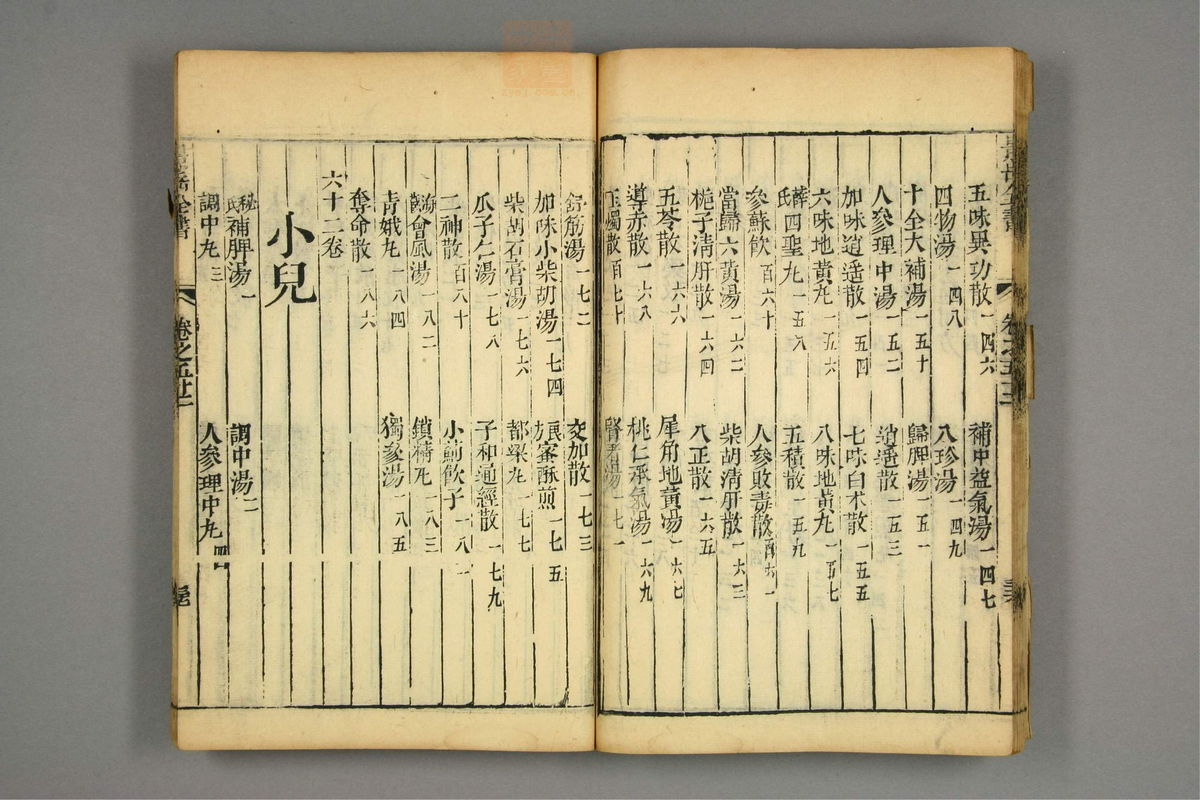 五味異功散一四六 補中益氣湯一四七
四物湯一四八 八珍湯一四九
十全大補湯一五十 歸脾湯一五一
人參理中湯一五二 逍遙散一五三
加味逍遙散一五四 七味白朮散一五五
六味地黃丸一五六 八味地黃丸一五七
薛氏四聖丸一五八 五積散一五九
參蘇飲百六十 人參敗毒散百六一
當歸六黃湯一六二 柴胡清肝散一六三
梔子清肝散一六四 八正散一六五
五苓散一六六 犀角地黃湯一六七
導赤散一六八 桃仁承氣湯一六九
玉燭散百七十 腎着湯一七一
舒筋湯一七二 交加散一七三
加味小柴胡湯一七四 良方蜜酥煎一七五
柴胡石膏湯一七六 都梁丸一七七
瓜子仁湯一七八 子和通經散一七九
二神散百八十 小薊飲子一八一
會風湯一八二 鎖精丸一八三
青娥丸一八四 獨參湯一八五
奪命散一八六
六十二卷
小兒
秘氏補脾湯一 調中湯二
調中丸三 人參理中丸四
景岳全書 卷之五十三